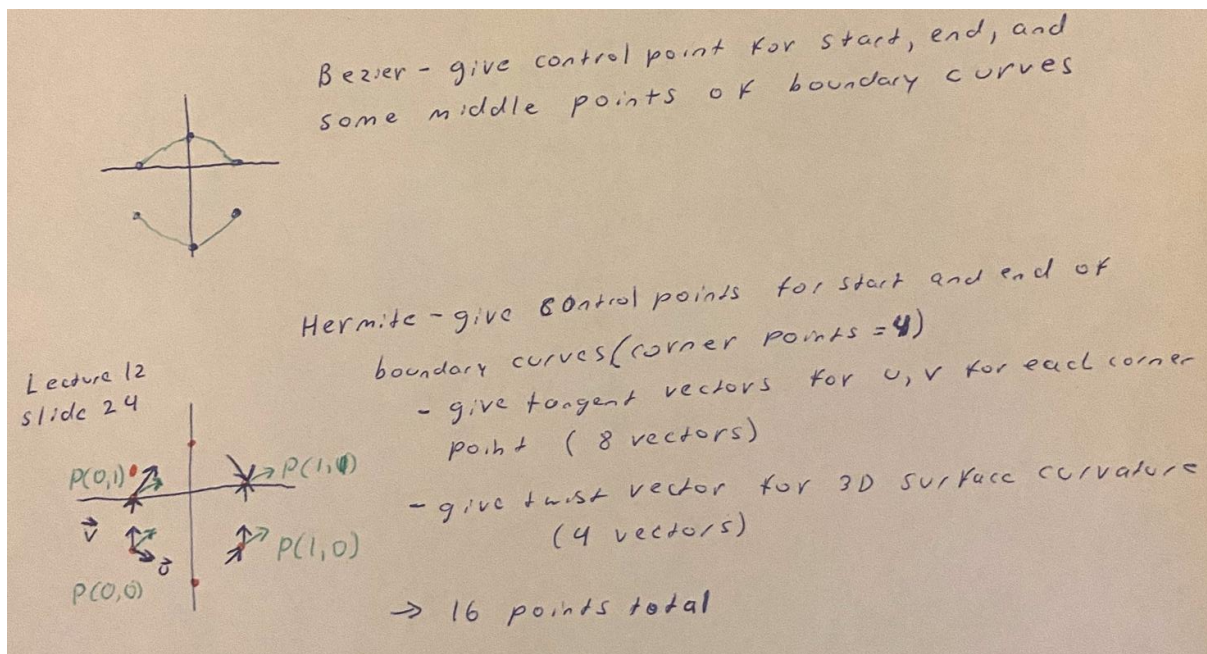 Bezier - give control point for start, end, and
some middle points of boundary curves
Hermite - give control points for start and end of
boundary curves (corner points = 4)
- give tangent vectors for u, v for each corner
point (8 vectors)
- give twist vector for 3D surface curvature
(4 vectors)
→ 16 points total
Lecture 12
slide 24
P(0,1)
P(1,1)
v
u
P(1,0)
P(0,0)